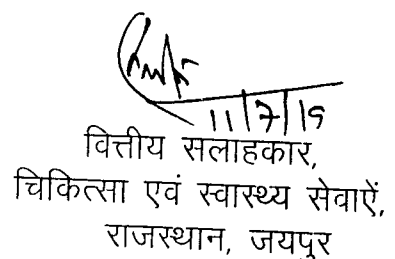 11/7/19
वित्तीय सलाहकार,
चिकित्सा एवं स्वास्थ्य सेवाऐं,
राजस्थान, जयपुर